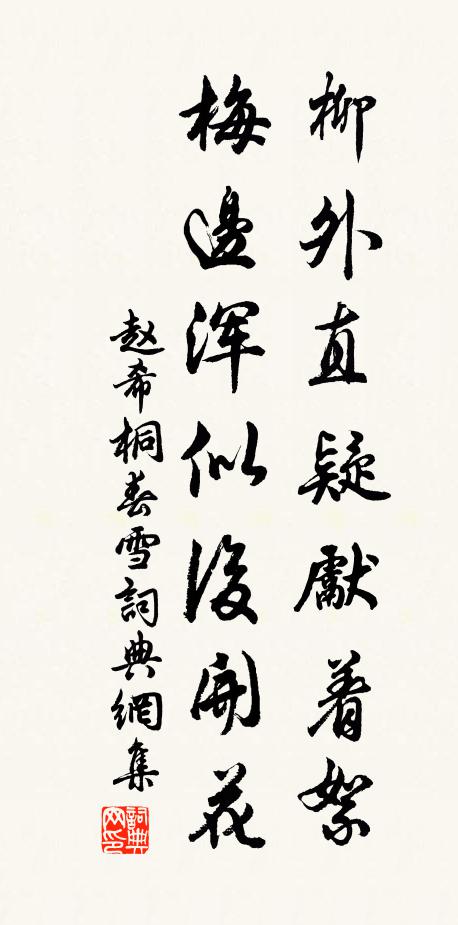 柳外直疑獻着絮
梅邊浑似後開花
赵希桐春雪詞典網集
詞典网印